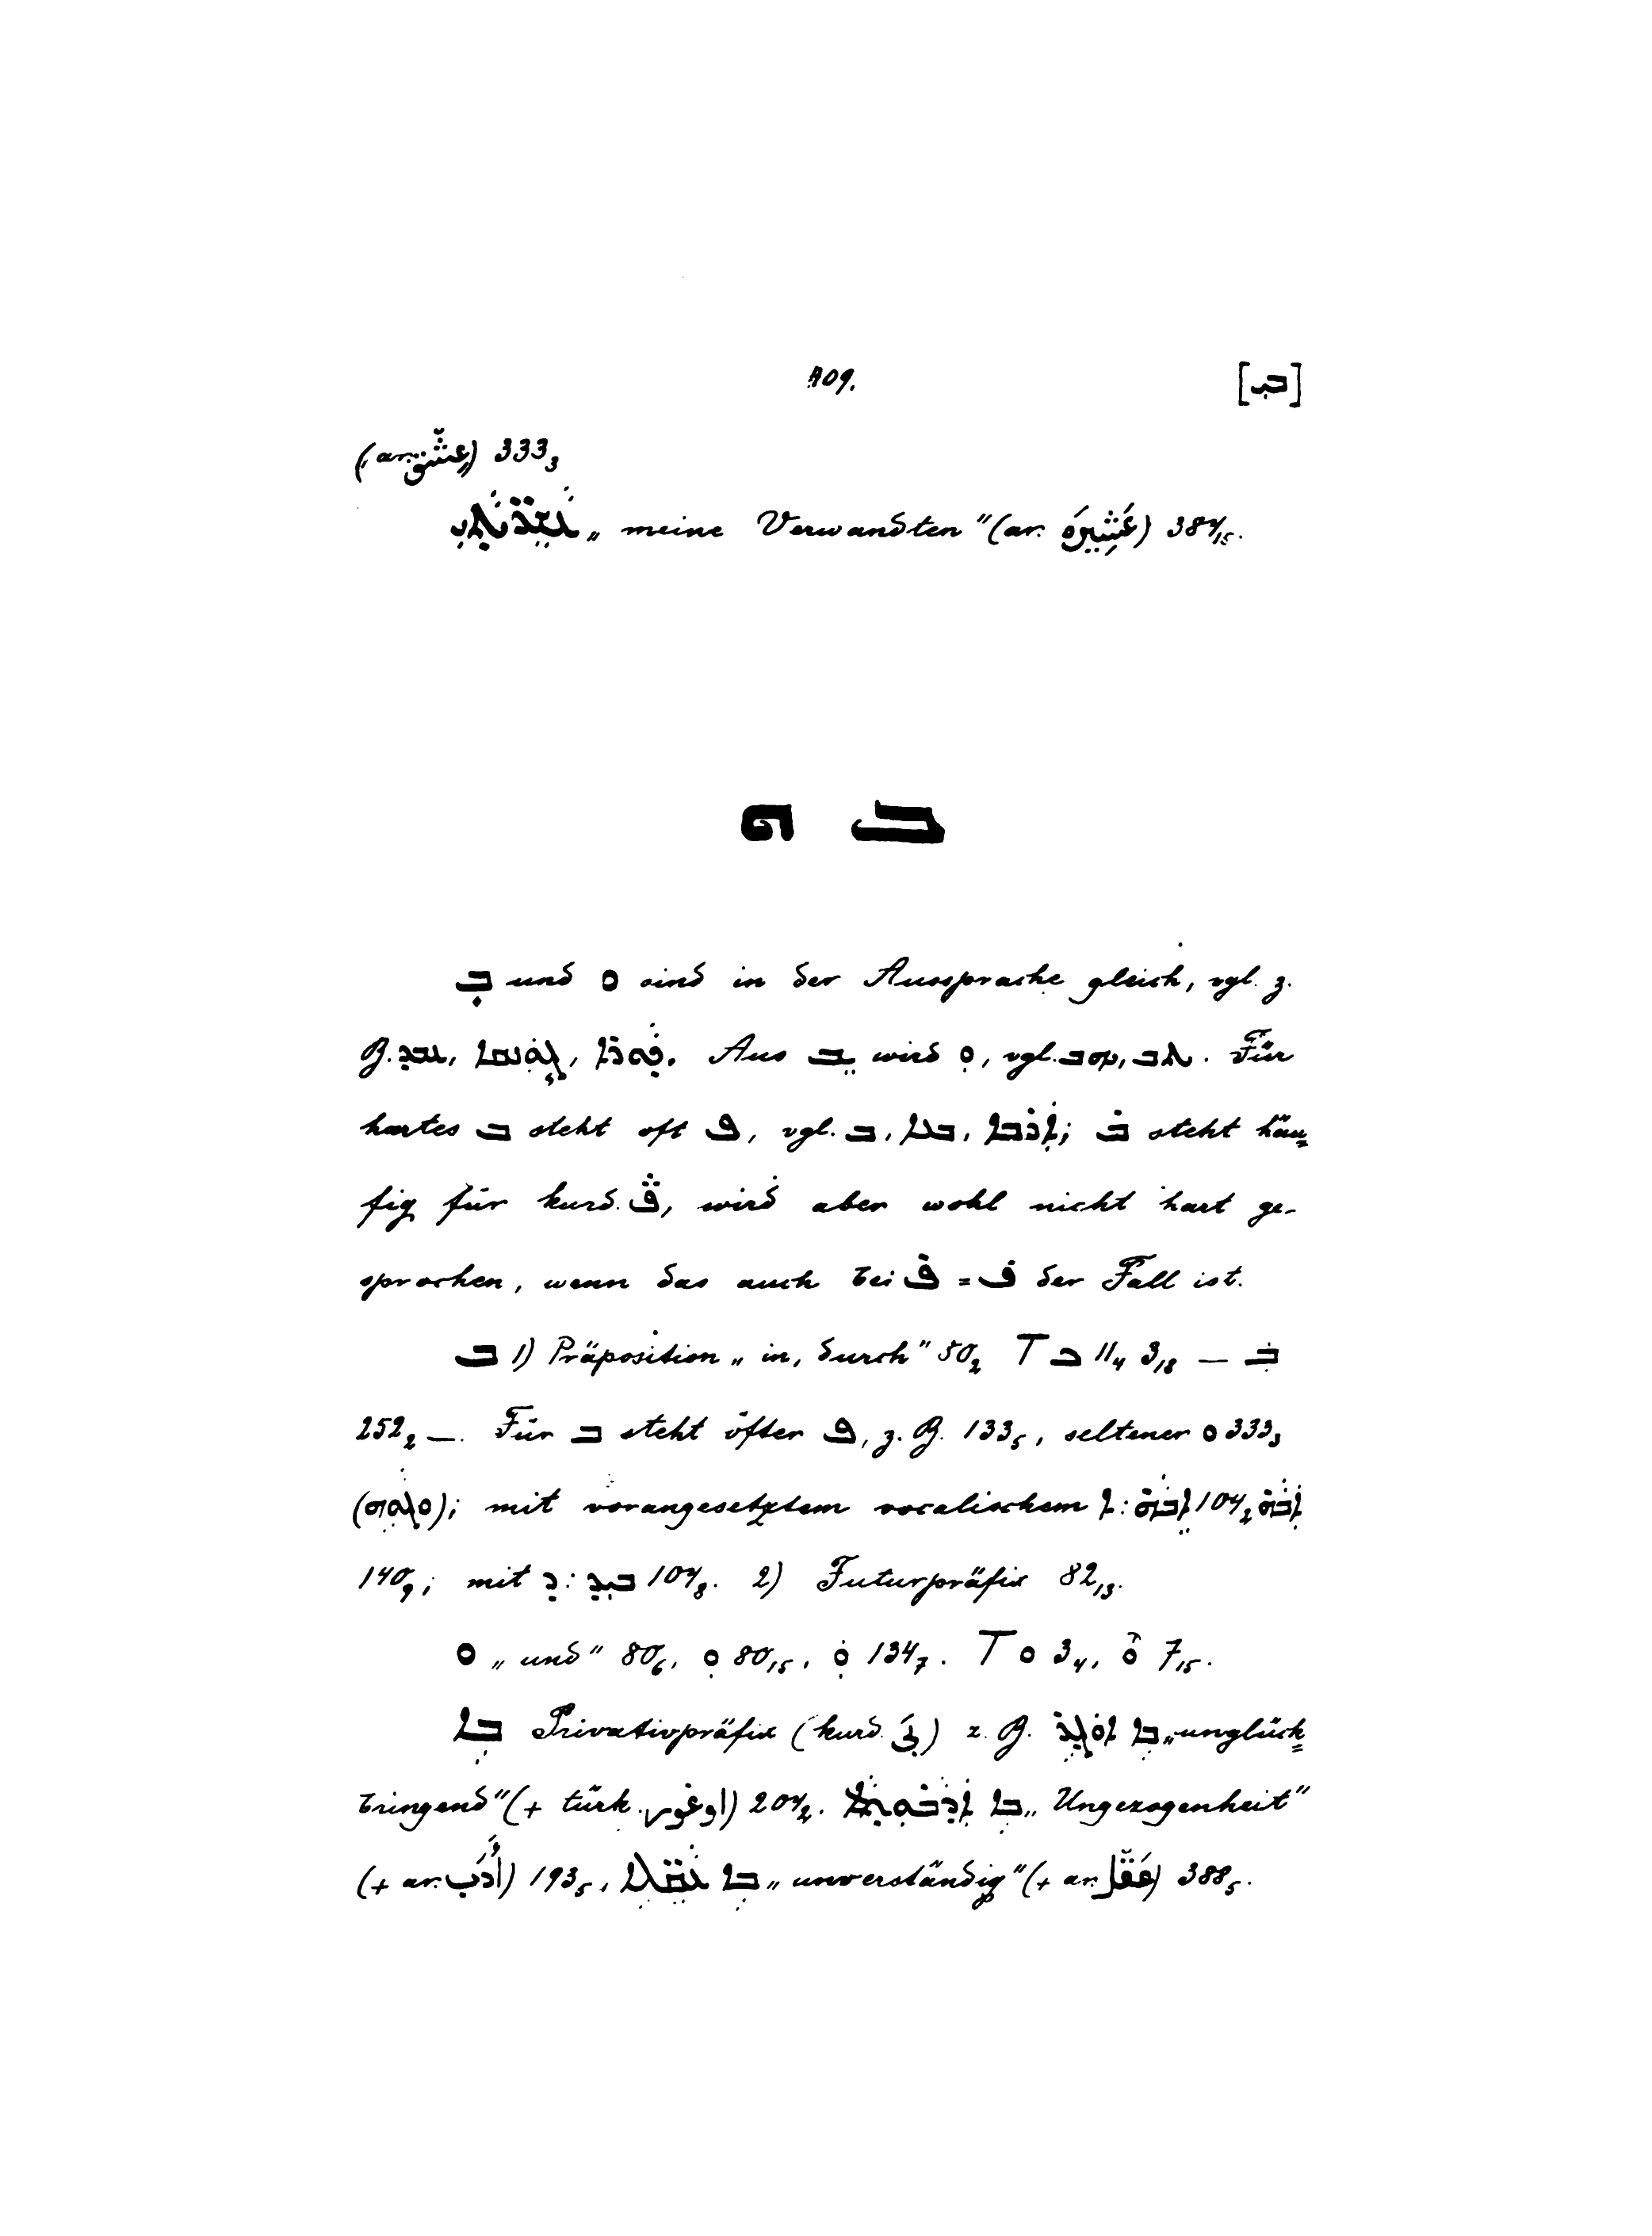 109. [ܒܝ]
(ar. عِشْق) 333₃
„meine Verwandten" (ar. عَشِيرَه) 384₁₅.
ܒ ܘ
ܒ und ܘ sind in der Aussprache gleich, vgl. z.
B. Aus ܒ wird ܘ, vgl. Für
hartes ܒ steht oft ܦ, vgl. ܒ, ; ܒ steht häu=
fig für kurd. ڤ, wird aber wohl nicht hart ge-
sprochen, wenn das auch bei ܦ = ف der Fall ist.
ܒ 1) Präposition „in, durch" 50₂ T ܒ 11₄ 3₁₈ — ܒ
252₂ —. Für ܒ steht öfter ܦ, z. B. 133₅, seltener ܘ 333₃
; mit vorangesetztem vocalischem ܐ: 104₂
140₉; mit ܕ: ܒܝܕ 104₈. 2) Futurpräfix 82₁₃.
ܘ „und" 80₆, ܘ 80₁₅, ܘ 134₇. T ܘ 3₄, ܘ 7₁₅.
ܒܐ Privativpräfix (kurd. بَى) z. B. ܒܐ „unglück=
bringend" (+ türk. اوغور) 204₂. ܒܐ „Ungezogenheit"
(+ ar. أَدَب) 193₅, ܒܐ „unverständig" (+ ar. عَقْل) 388₅.